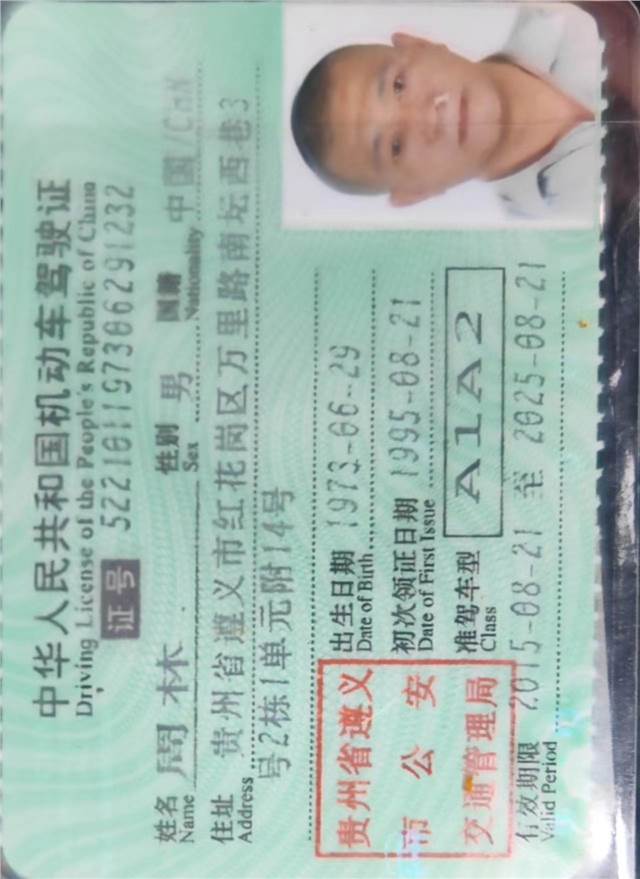 中华人民共和国机动车驾驶证
Driving License of the People's Republic of China
证号 522101197306291232
姓名 周林 性别 男 国籍 中国/CHN
Name Sex Nationality
住址 贵州省遵义市红花岗区万里路南坛西巷3
Address 号2栋1单元附14号
出生日期 1973-06-29
Date of Birth
初次领证日期 1995-08-21
Date of First Issue
准驾车型 A1A2
Class
贵州省遵义
市公安
交通管理局
有效期限 2015-08-21 至 2025-08-21
Valid Period